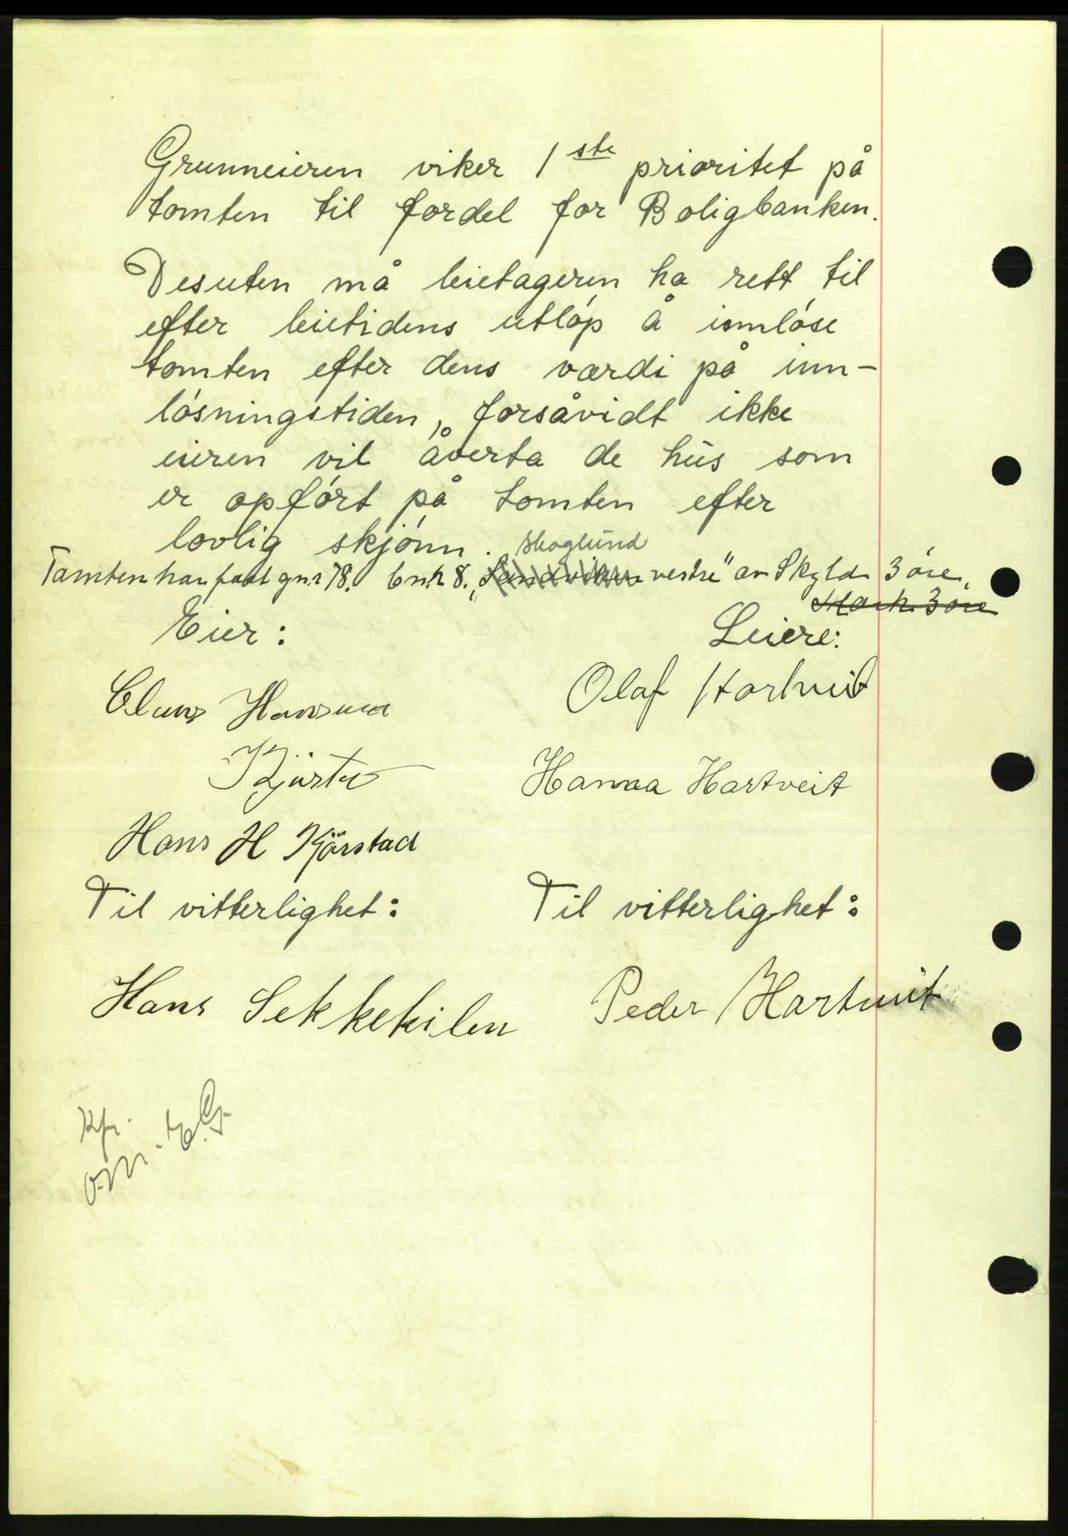 Grunneieren viker 1ste prioritet på
tomten til fordel for Boligbanken.
Desuten må leietageren ha rett til
efter leietidens utløp å innløse
tomten efter dens værdi på inn-
løsningstiden, forsåvidt ikke
eieren vil åverta de hus som
er opført på tomten efter
lovlig skjønn.
Skoglund
Tomten har fått gnr 78. bnr 8. „Sandviken vestre" av Skyld 3 øre.
Mark 3 øre
Eier: Leiere:
Claus Hansen Olaf Hartveit
Hanna Hartveit
Hans H Kjörstad
Til vitterlighet: Til vitterlighet:
Hans Sekkekilen Peder Hartveit
Kfr.